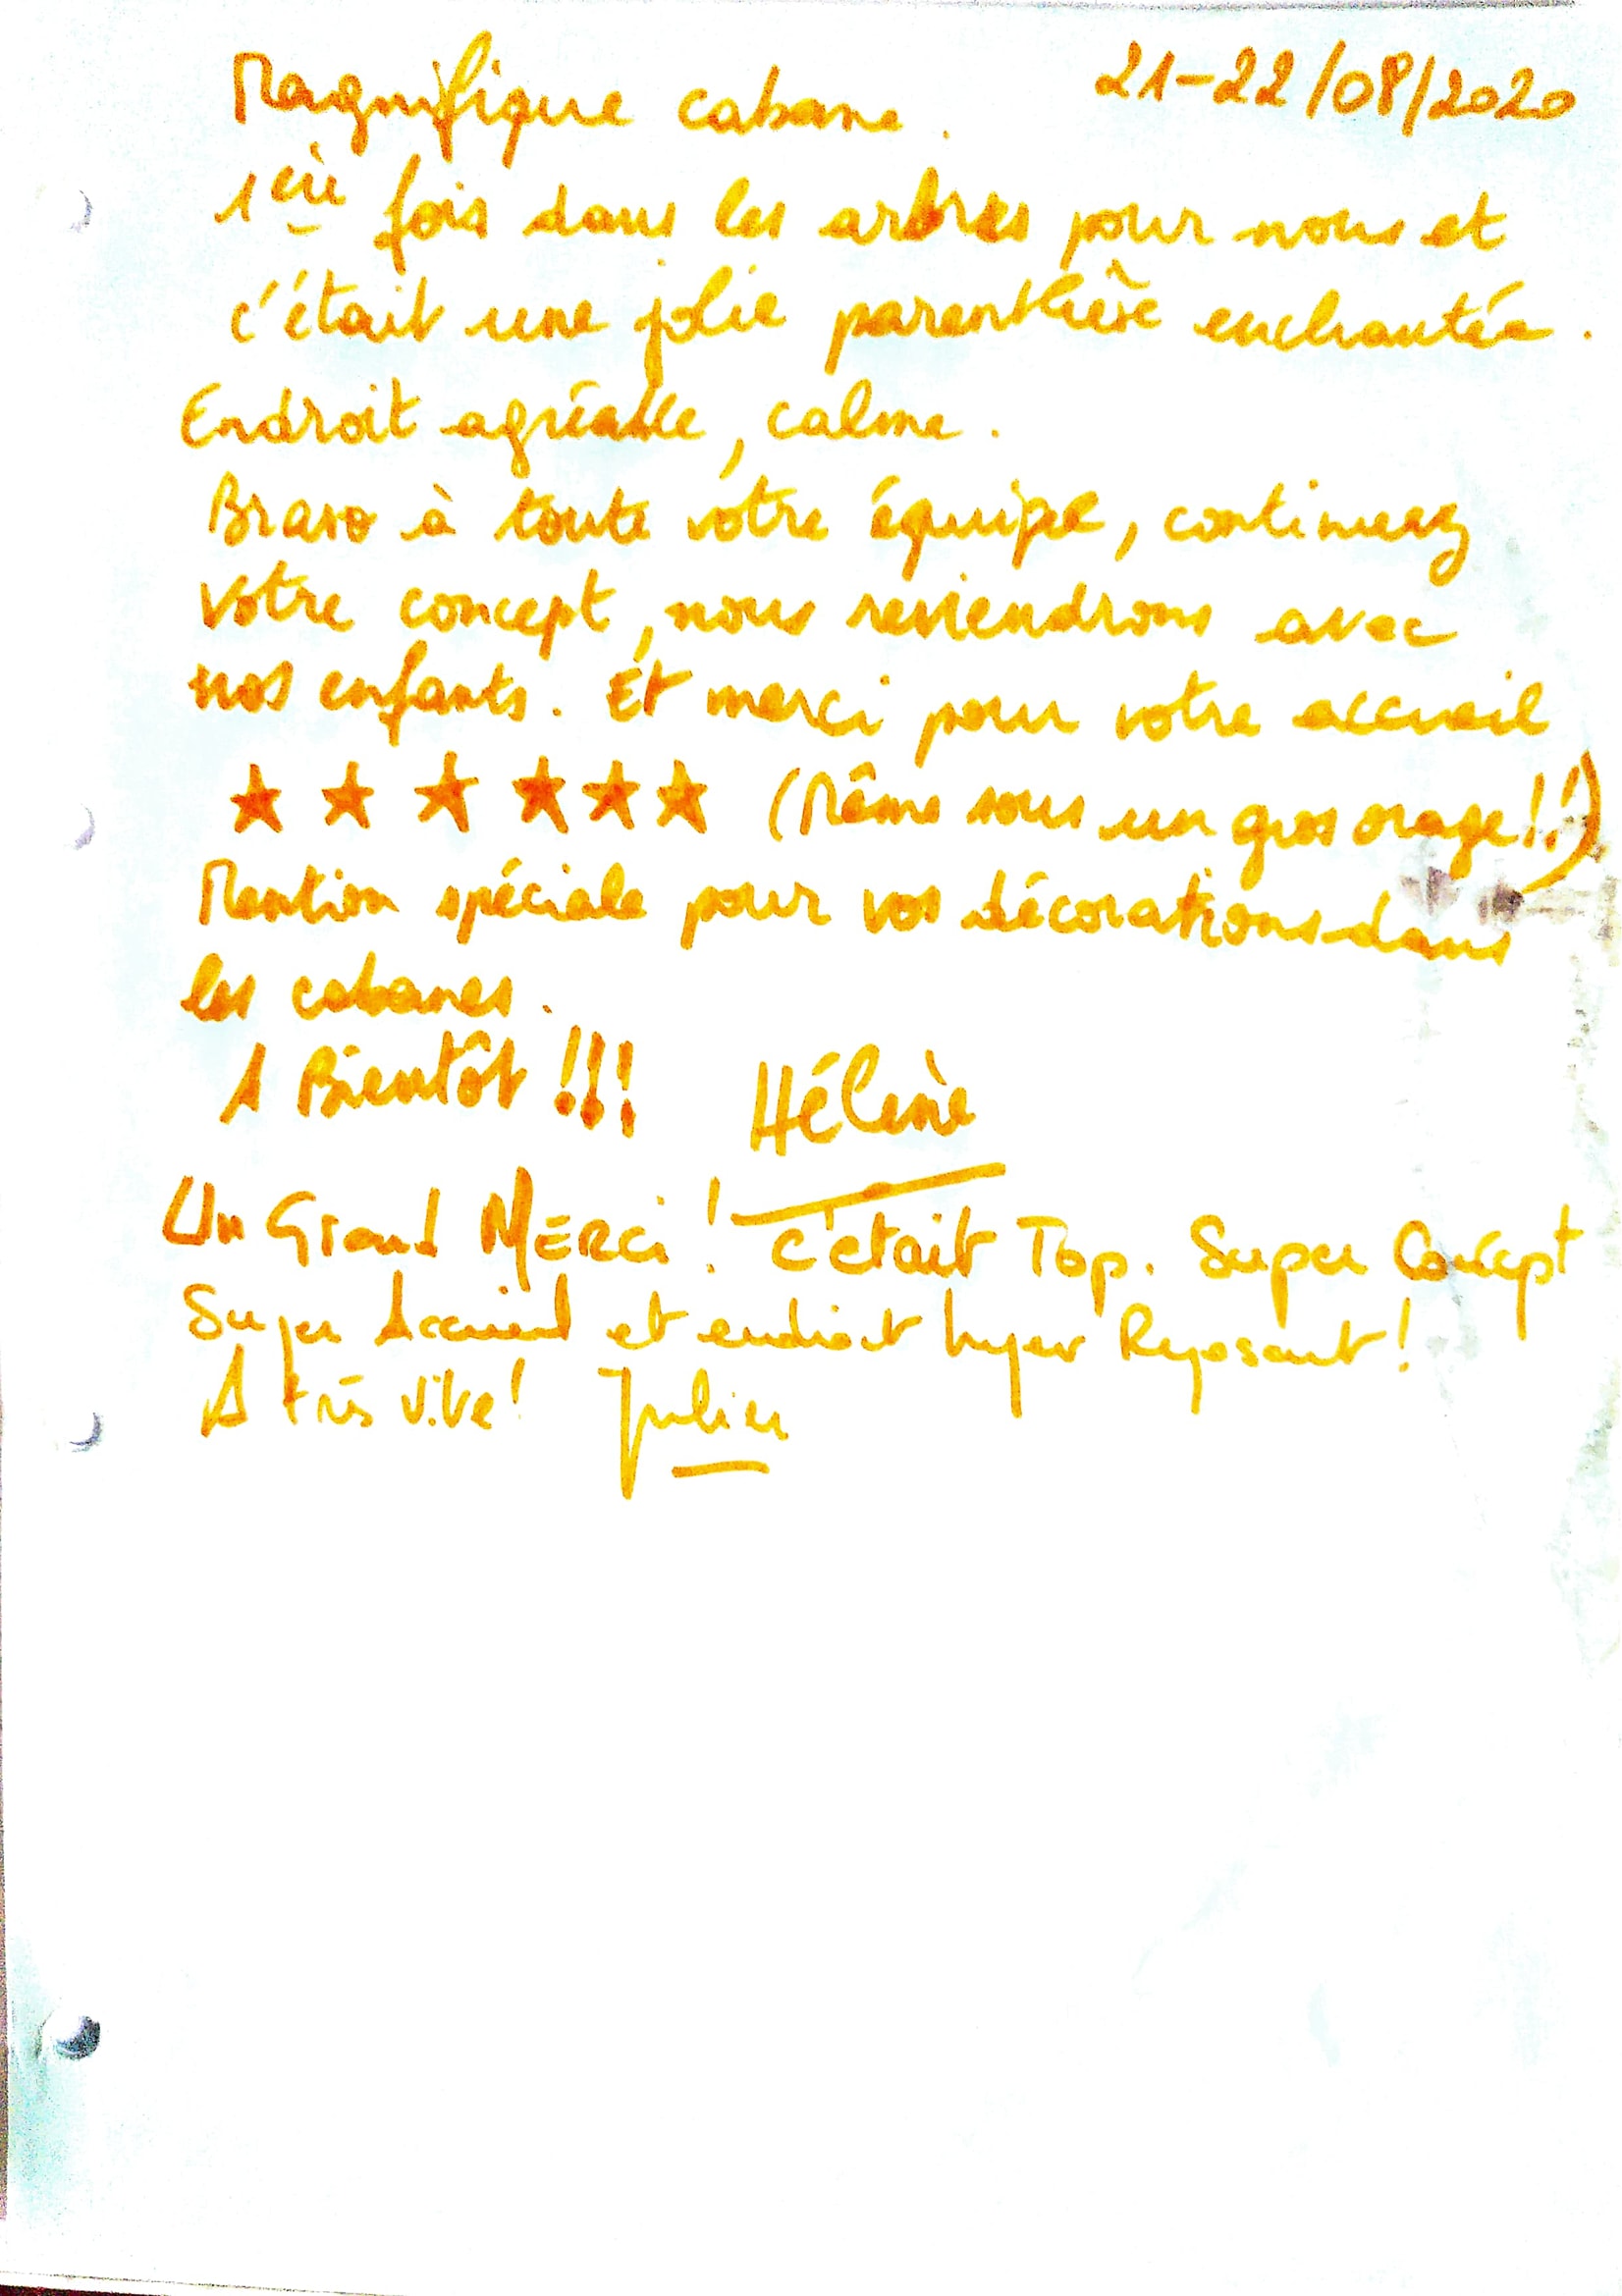 Magnifique cabane. 21-22/08/2020
1ère fois dans les arbres pour nous et
c'était une jolie parenthèse enchantée.
Endroit agréable, calme.
Bravo à toute votre équipe, continuez
votre concept, nous reviendrons avec
nos enfants. Et merci pour votre accueil
★ ★ ★ ★ ★ ★ (Même sous un gros orage!!)
Mention spéciale pour vos décorations dans
les cabanes.
A Bientôt !!! Hélène
Un Grand MERCi ! C'était Top. Super Concept
Super Accueil et endroit hyper Reposant !
A très vite ! Julien